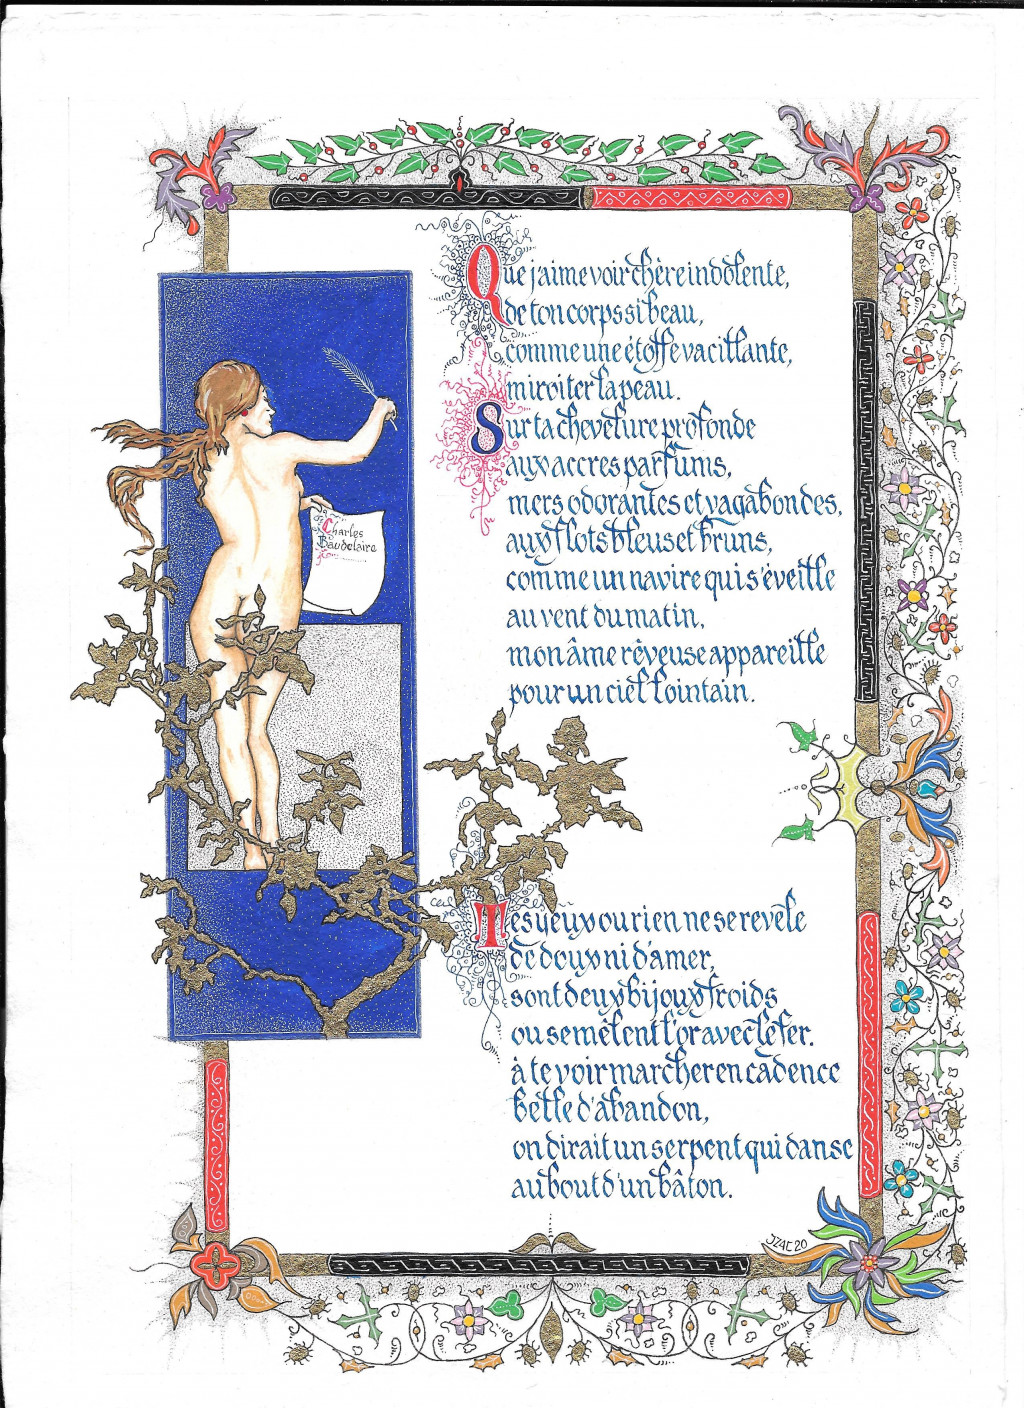 Que j'aime voir chère indolente,
de ton corps si beau,
comme une étoffe vacillante,
miroiter la peau.
Sur ta chevelure profonde
aux accres parfums,
mers odorantes et vagabondes,
aux flots bleus et bruns,
comme un navire qui s'éveille
au vent du matin,
mon âme rêveuse appareille
pour un ciel lointain.
Charles
Baudelaire
Tes yeux ou rien ne se revele
de doux ni d'amer,
sont deux bijoux froids
ou se mêlent l'or avec le fer.
à te voir marcher en cadence
belle d'abandon,
on dirait un serpent qui danse
au bout d'un bâton.
JZAC 20